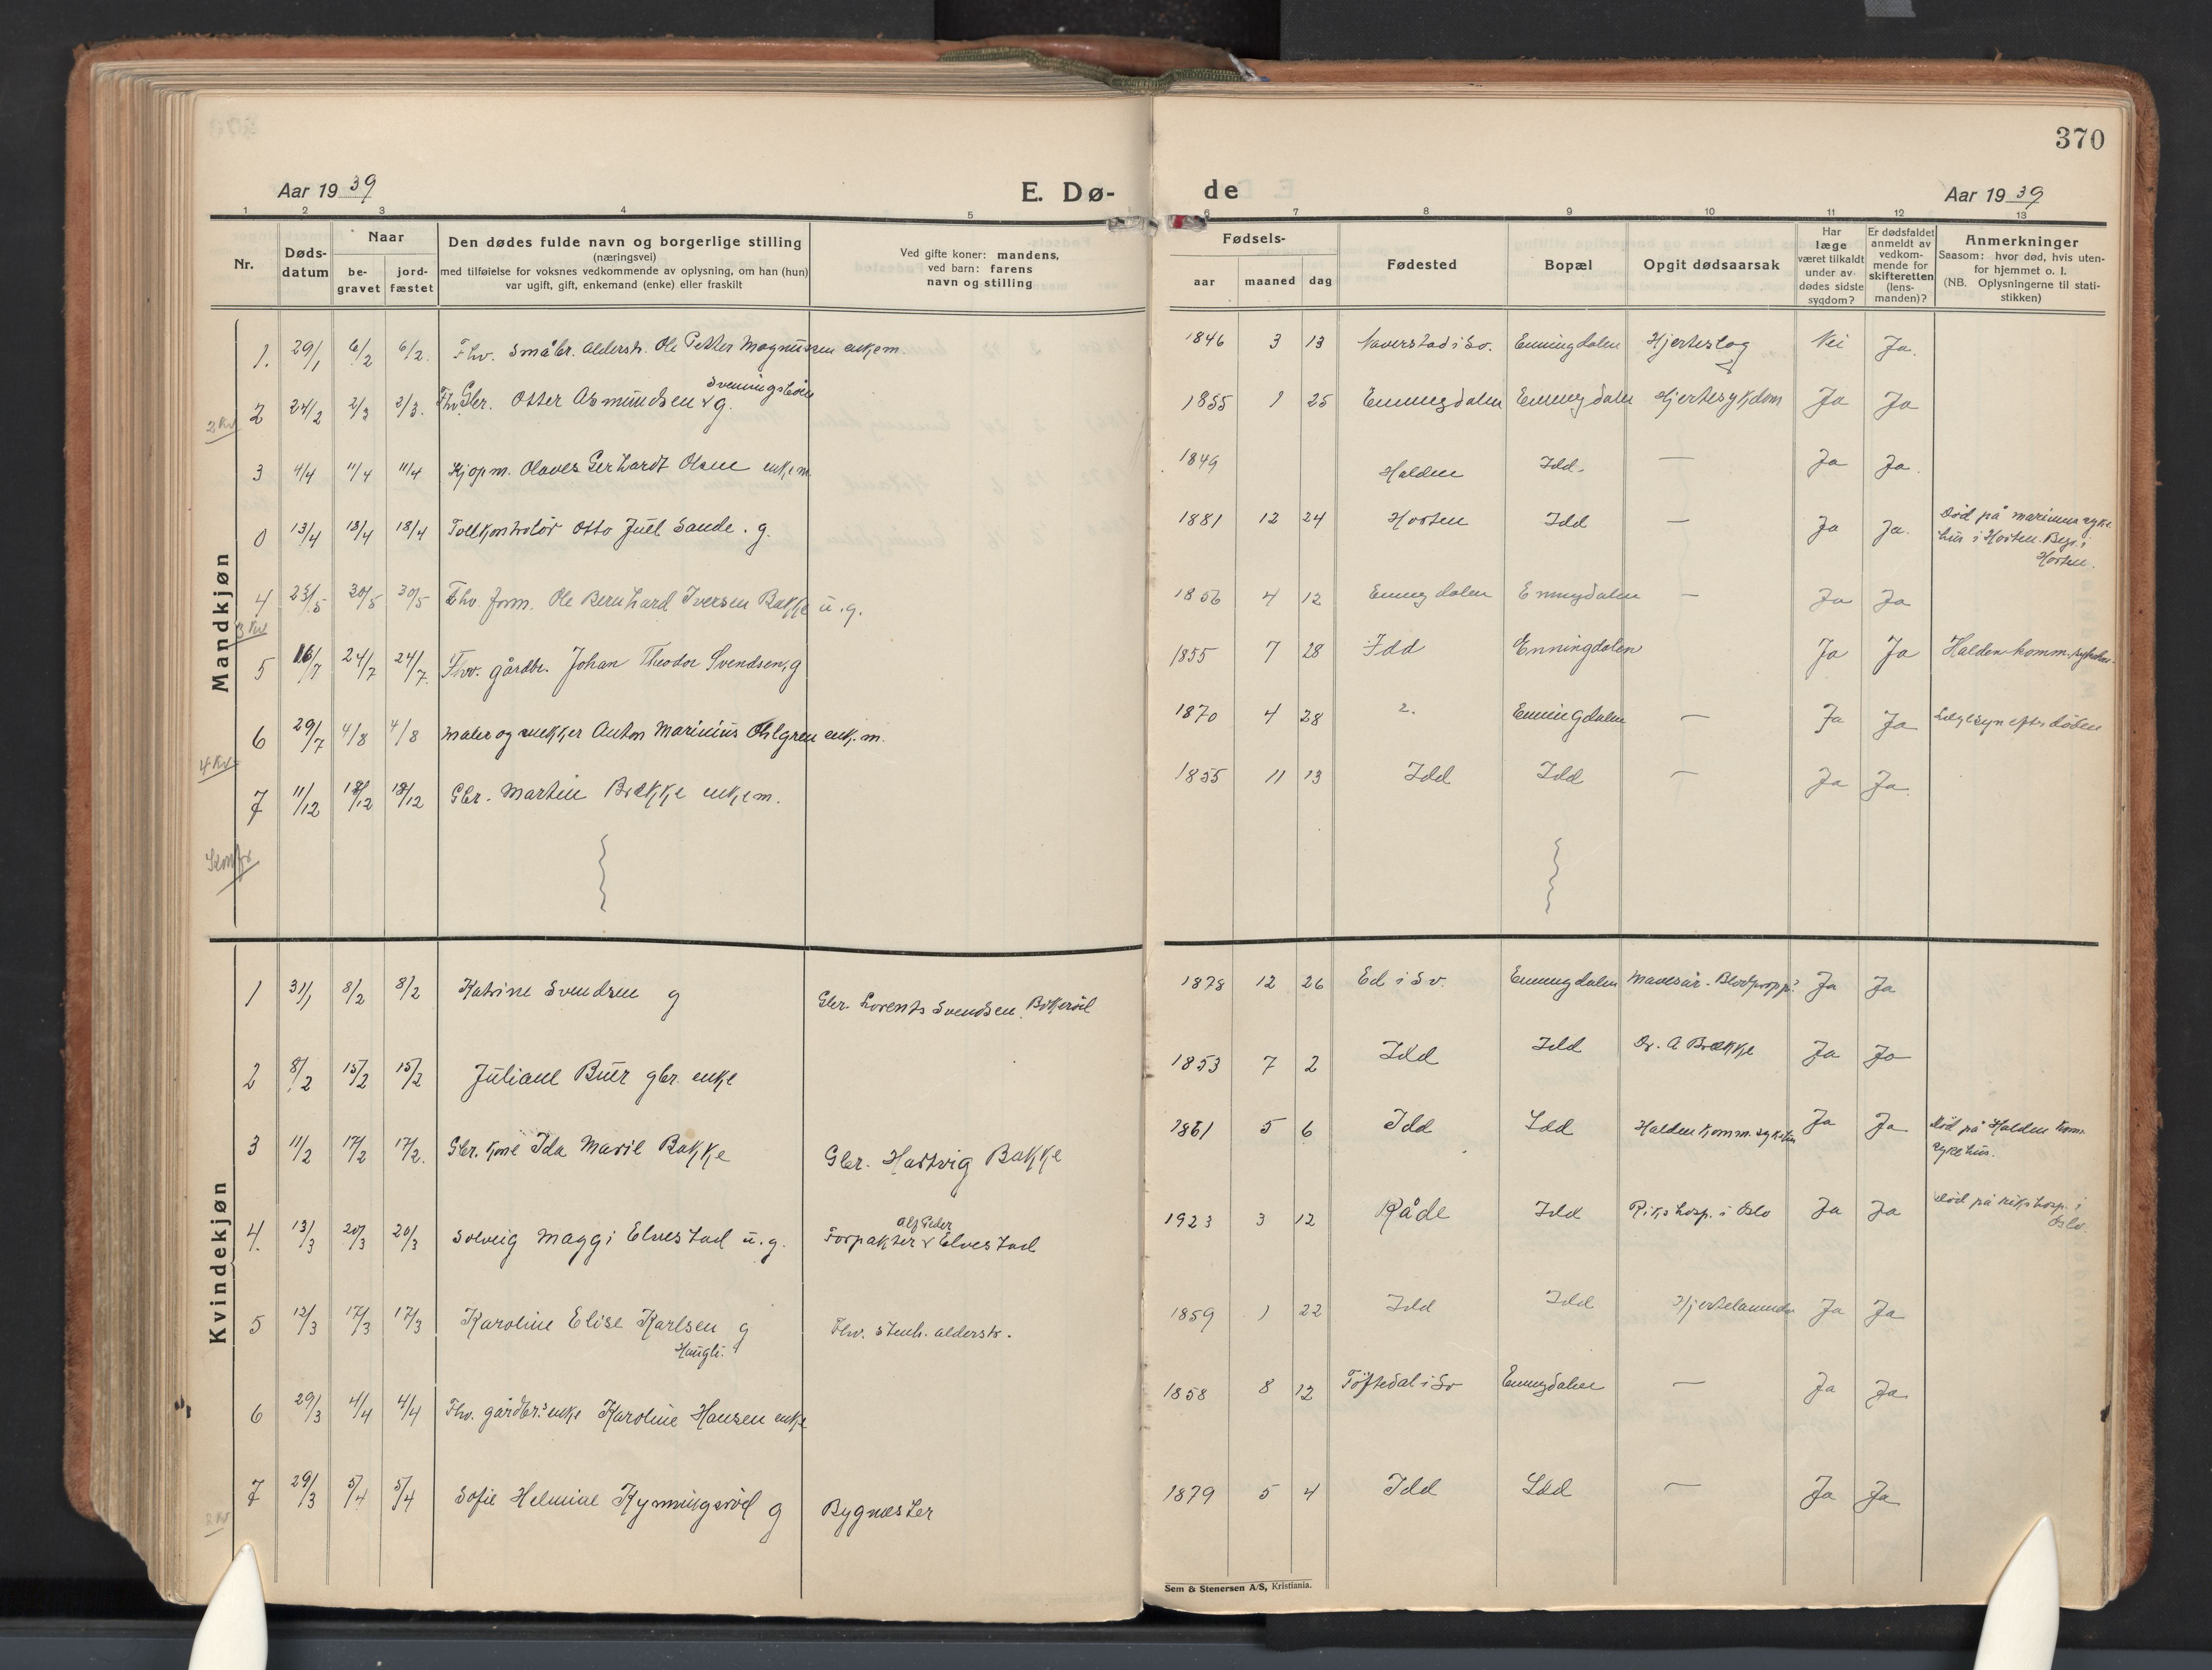 370
Aar 1939 E. Dø- de Aar 1939
1 2 3 4 5 6 7 8 9 10 11 12 13
Nr. Døds-datum Naar be-gravet jord-fæstet
Den dødes fulde navn og borgerlige stilling
(næringsvei)
med tilføielse for voksnes vedkommende av oplysning, om han (hun)
var ugift, gift, enkemand (enke) eller fraskilt
Ved gifte koner: mandens,
ved barn: farens
navn og stilling
Fødsels-
aar maaned dag
Fødested
Bopæl
Opgit dødsaarsak
Har
læge
været tilkaldt
under av-
dødes sidste
sygdom?
Er dødsfaldet
anmeldt av
vedkom-
mende for
skifteretten
(lens-
manden)?
Anmerkninger
Saasom: hvor død, hvis uten-
for hjemmet o. l.
(NB. Oplysningerne til stati-
stikken)
Mandkjøn
1. 29/1 6/2 6/2. Fhv. småbr. alderstr. Ole Petter Magnussen enkem. 1846 3 13 Naverstad i Sv. Enningdalen Hjerteslag Nei Ja.
Sveningsbøen
2 24/2 2/3 2/3. Fhv. Gbr. Otter Asmundsen g. 1855 1 25 Enningdalen Enningdalen Hjertesykdom Ja Ja
2 Kv
3 4/4 11/4 11/4 Kjøpm. Olaves Gerhardt Olsen enkem 1849 Halden Idd. — Ja Ja.
0 13/4 18/4 18/4 Tollkontrolør Otto Juel Sande. g. 1881 12 24 Horten Idd — Ja Ja. Død på marinens syke
hus i Horten. Begr. i
Horten.
4 23/5 30/5 30/5 Fhv. form. Ole Bernhard Iversen Bakke u.g. 1856 4 12 Enningdalen Enningdalen — Ja Ja
3 Kv
5 16/7 24/7 24/7. Fhv. gårdbr. Johan Theodor Svendsen, g 1855 7 28 Idd Enningdalen Ja Ja Halden komm. sykehus.
6 29/7 4/8 4/8 Maler og snekker Anton Marinius Ohlgren enk.m. 1870 4 28 Enningdalen — Ja Ja Legesyn efter døden
4 Kv
7 11/12 18/12 18/12 Gbr. Martin Brække enkem. 1855 11 13 Idd Idd — Ja Ja.
Kvindekjøn
1 31/1 8/2 8/2 Katrine Svendsen g Gbr. Lorents Svendsen Bokerød 1878 12 26 Ed i Sv. Enningdalen Mavesår. Blodpropp? Ja Ja
2 8/2 15/2 15/2 Juliane Buer gbr. enke 1853 7 2 Idd Idd Dr. A Brække Ja Ja
3 11/2 17/2 17/2. Gbr. kone Ida Marie Bakke Gbr. Hartvig Bakke 1861 5 6 Idd Idd Halden komm. sykehus Ja Ja Død på Halden kom.
sykehus.
Alf Peder
4. 13/3 20/3 20/3 Solveig Maggi Elvestad u.g. Forpakter Elvestad 1923 3 12 Råde Idd Rikshosp. i Oslo Ja Ja Død på rikshosp. i
Oslo.
5 12/3 17/3 17/3 Karoline Elise Karlsen g Fhv. stenh. alderstr. 1859 1 22 Idd Idd Hjertelammelse Ja Ja
Haugli.
6 29/3 4/4 4/4 Fhv. gårdbr.s enke Karoline Hansen enke 1858 8 12 Töftedal i Sv Enningdalen — Ja Ja
7 29/3 5/4 5/4 Sofie Helmine Kynningsrød g Bygmester 1879 5 4 Idd Idd — Ja Ja
Sem & Stenersen A/S, Kristiania.